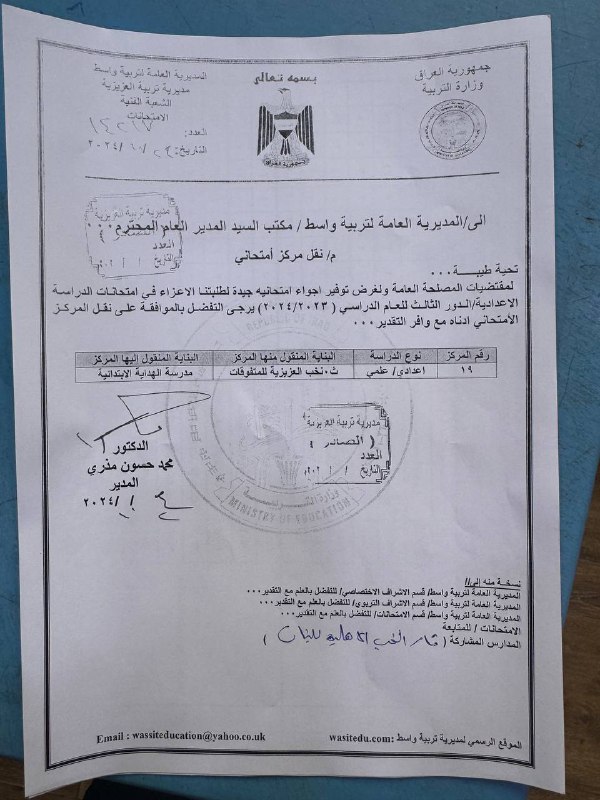 بسمه تعالى
جمهورية العراق
وزارة التربية
المديرية العامة لتربية واسط
مديرية تربية العزيزية
الشعبة الفنية
الامتحانات
العدد:
التاريخ: ٢٠٢٤/١٠/
الى/المديرية العامة لتربية واسط/ مكتب السيد المدير العام المحترم٠٠٠
م/ نقل مركز أمتحاني
مديرية تربية العزيزية
العدد
التاريخ
تحية طيبـــة ٠٠٠
لمقتضيات المصلحة العامة ولغرض توفير اجواء امتحانيه جيدة لطلبتنا الاعزاء في امتحانات الدراسة
الاعدادية/الدور الثالث للعام الدراسي (٢٠٢٤/٢٠٢٣) يرجى التفضل بالموافقة على نقل المركز
الأمتحاني ادناه مع وافر التقدير٠٠٠
رقم المركز نوع الدراسة البناية المنقول منها المركز البناية المنقول اليها المركز
١٩ اعدادي/ علمي ث٠نخب العزيزية للمتفوقات مدرسة الهداية الابتدائية
مديرية تربية العزيزية
( الصادر )
العدد
التاريخ
MINISTRY OF EDUCATION
الدكتور
محمد حسون منري
المدير
٢٠٢٤/
نسخة منه إلى//
المديرية العامة لتربية واسط/ قسم الاشراف الاختصاصي/ للتفضل بالعلم مع التقدير٠٠٠
المديرية العامة لتربية واسط/ قسم الاشراف التربوي/ للتفضل بالعلم مع التقدير٠٠٠
المديرية العامة لتربية واسط/ قسم الامتحانات/ للتفضل بالعلم مع التقدير٠٠٠
الامتحانات / للمتابعة
المدارس المشاركة ( الاهلية للبنات )
الموقع الرسمي لمديرية تربية واسط :wasitedu.com
Email : wassiteducation@yahoo.co.uk